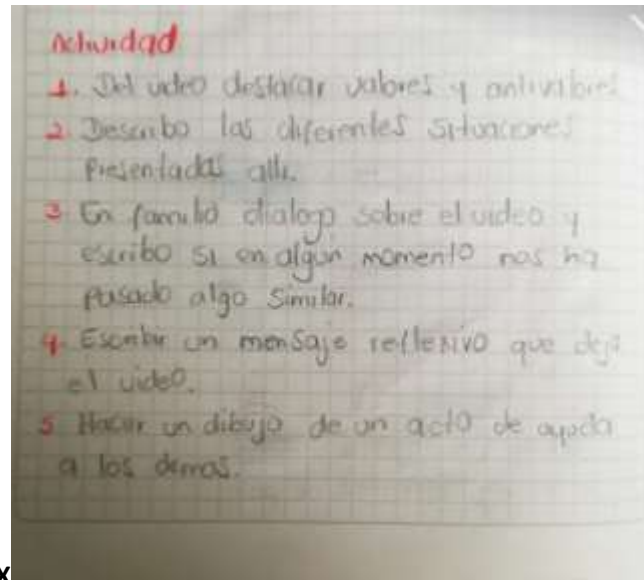 Actividad
1. Del video destacar valores y antivalores
2. Describo las diferentes situaciones
Presentadas alli.
3 En familia dialogo sobre el video y
escribo si en algún momento nos ha
pasado algo similar.
4. Escribir un mensaje reflexivo que deja
el video.
5 Hacer un dibujo de un acto de ayuda
a los demas.
x